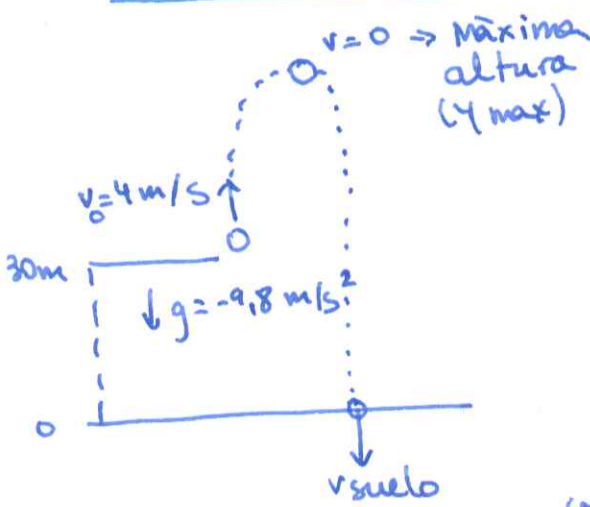 v = 0 ⇒ Máxima
altura
(y max)
v₀=4m/s
30m
↓ g=-9,8 m/s²
0
v suelo